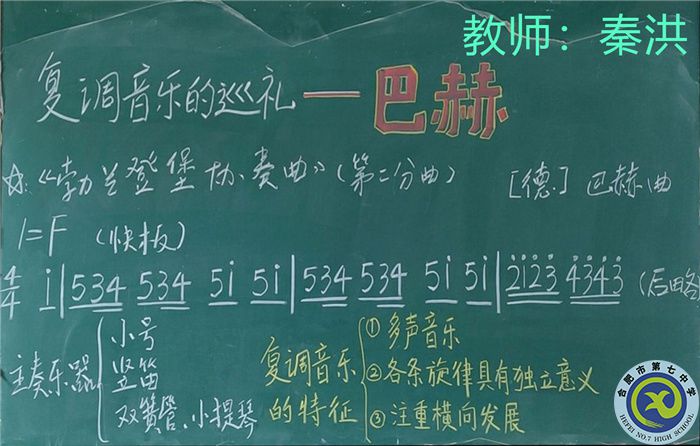 教师：秦洪
复调音乐的巡礼—巴赫
☆:《勃兰登堡协奏曲》(第二分曲) [德.] 巴赫曲
1=F (快板)
4/4 i|534 534 5i 5i|534 534 5i 5i|2123 4343 (后略
主奏乐器
小号
竖笛
双簧管、小提琴
复调音乐的特征
①多声音乐
②各条旋律具有独立意义
③注重横向发展
合肥市第七中学
HEFEI NO.7 HIGH SCHOOL